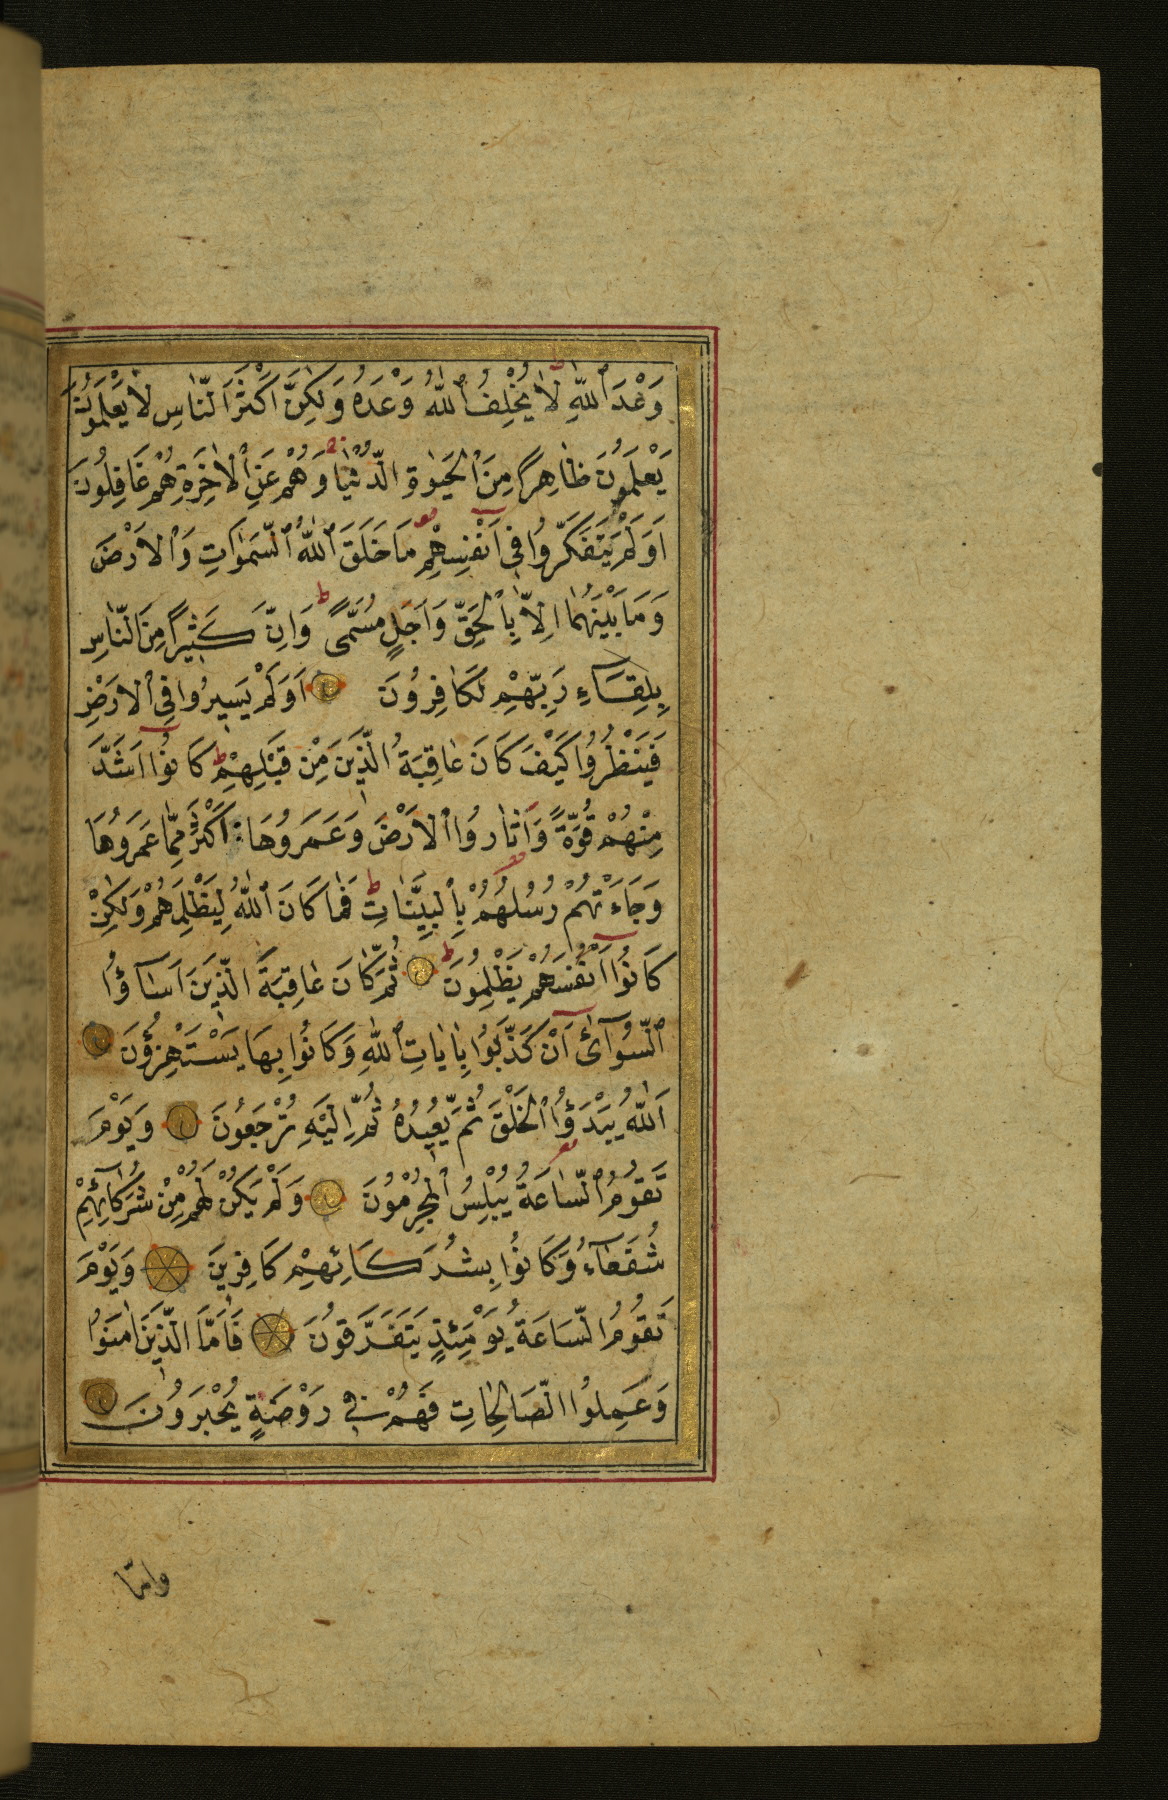 وَعْدَ ٱللّٰهِ لَا يُخْلِفُ ٱللّٰهُ وَعْدَهُ وَلٰكِنَّ اَكْثَرَ النَّاسِ لَا يَعْلَمُونَ
يَعْلَمُونَ ظَاهِرًا مِنَ ٱلْحَيٰوةِ الدُّنْيَا وَهُمْ عَنِ ٱلْاٰخِرَةِ هُمْ غَافِلُونَ
اَوَلَمْ يَتَفَكَّرُوا فِى اَنْفُسِهِمْ مَا خَلَقَ ٱللّٰهُ ٱلسَّمٰوَاتِ وَٱلْاَرْضَ
وَمَا بَيْنَهُمَا اِلَّا بِٱلْحَقِّ وَاَجَلٍ مُسَمًّى وَاِنَّ كَثِيرًا مِنَ النَّاسِ
بِلِقَاءِ رَبِّهِمْ لَكَافِرُونَ اَوَلَمْ يَسِيرُوا فِى ٱلْاَرْضِ
فَيَنْظُرُوا كَيْفَ كَانَ عَاقِبَةُ الَّذِينَ مِنْ قَبْلِهِمْ كَانُوا اَشَدَّ
مِنْهُمْ قُوَّةً وَاَثَارُوا ٱلْاَرْضَ وَعَمَرُوهَا اَكْثَرَ مِمَّا عَمَرُوهَا
وَجَاءَتْهُمْ رُسُلُهُمْ بِٱلْبَيِّنَاتِ فَمَا كَانَ ٱللّٰهُ لِيَظْلِمَهُمْ وَلٰكِنْ
كَانُوا اَنْفُسَهُمْ يَظْلِمُونَ ثُمَّ كَانَ عَاقِبَةَ الَّذِينَ اَسَآؤُا
ٱلسُّوآٰى اَنْ كَذَّبُوا بِاٰيَاتِ ٱللّٰهِ وَكَانُوا بِهَا يَسْتَهْزِؤُنَ
اَللّٰهُ يَبْدَؤُا ٱلْخَلْقَ ثُمَّ يُعِيدُهُ ثُمَّ اِلَيْهِ تُرْجَعُونَ وَيَوْمَ
تَقُومُ ٱلسَّاعَةُ يُبْلِسُ ٱلْمُجْرِمُونَ وَلَمْ يَكُنْ لَهُمْ مِنْ شُرَكَائِهِمْ
شُفَعَآءُ وَكَانُوا بِشُرَكَائِهِمْ كَافِرِينَ وَيَوْمَ
تَقُومُ السَّاعَةُ يَوْمَئِذٍ يَتَفَرَّقُونَ فَاَمَّا الَّذِينَ اٰمَنُوا
وَعَمِلُوا الصَّالِحَاتِ فَهُمْ فِى رَوْضَةٍ يُحْبَرُونَ
وامّا